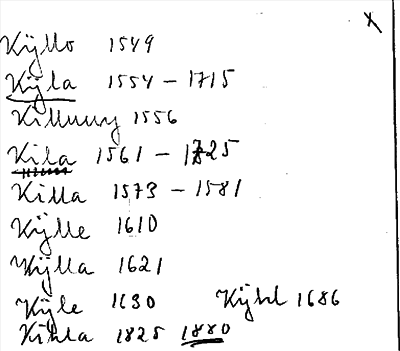 Kÿllo 1549
Kÿla 1554 - 1715
Killuuy 1556
Kila 1561 - 1825
Killa 1573 - 1581
Kÿlle 1610
Kÿlla 1621
Kÿle 1630 Kÿhl 1686
Kihla 1825 1880